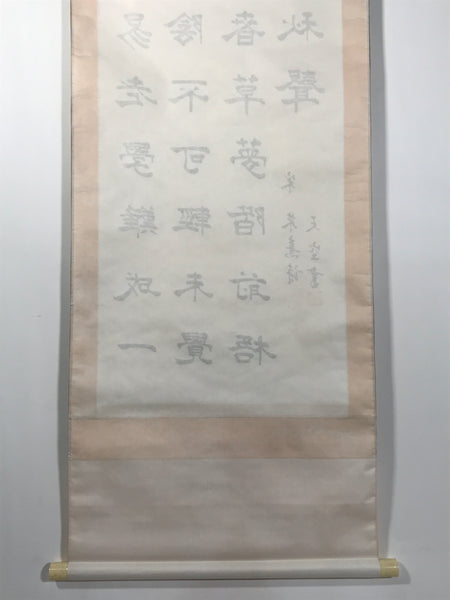 易老學難成一
陰不可輕未覺
春草夢階前梧
秋聲
朱熹詩